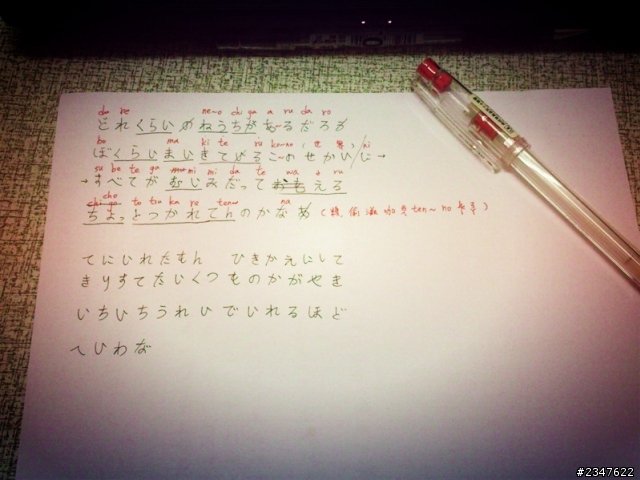 do re ne~o chi ga a ru da ro
どれくらいのねうちがあるだろう
bo ma ki te ru ko~no (世 界) ni
ぼくらいまいきてびるこ~のせかいに→
su be te ga mi mi da te wa ru
→すべてがむじみだってえる
cho to tsu ka re ten~ na
ちょっとつかれてんのかなあ ten~ no
てにいれたもん ひきかえにして
きりすてたいくつものかがやき
いちいちうれひでいれるほど
へいわな
#2347622